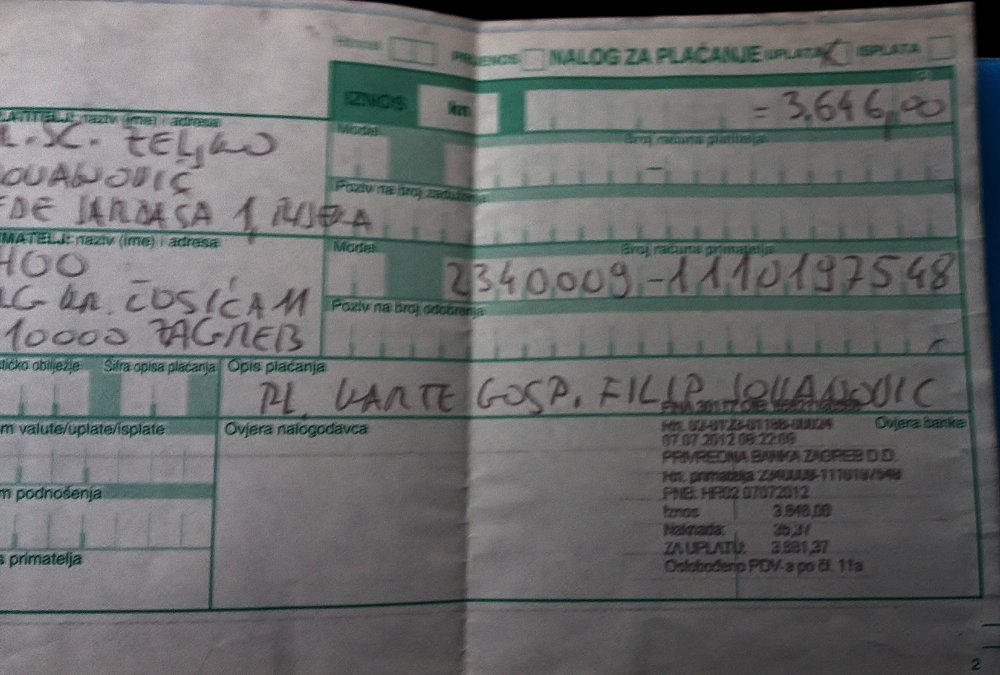 Hitnost PRIJENOS NALOG ZA PLAĆANJE UPLATA X ISPLATA
PLATITELJ: naziv (ime) i adresa IZNOS kn = 3.646,00
R.SC. ŽELJKO Model Broj računa platitelja
JOVANOVIĆ Poziv na broj zaduženja
JARDASA 1, RIJEKA
PRIMATELJ: naziv (ime) i adresa Model Broj računa primatelja
HOO 2340009-1110197548
TRG KR. ĆOSIĆA 11 Poziv na broj odobrenja
10000 ZAGREB
obilježje Šifra opisa plaćanja Opis plaćanja
PL. KARTE GOSP. FILIP JOVANOVIC
valute/uplate/isplate Ovjera nalogodavca Ovjera banke
07.07.2012
PRIVREDNA BANKA ZAGREB D.D.
Rn. primatelja 2340009-1110197548
podnošenja PNB: HR02 07072012
Iznos 3.646,00
Naknada: 35,37
primatelja ZA UPLATU: 3.681,37
Oslobođeno PDV-a po čl. 11a
2